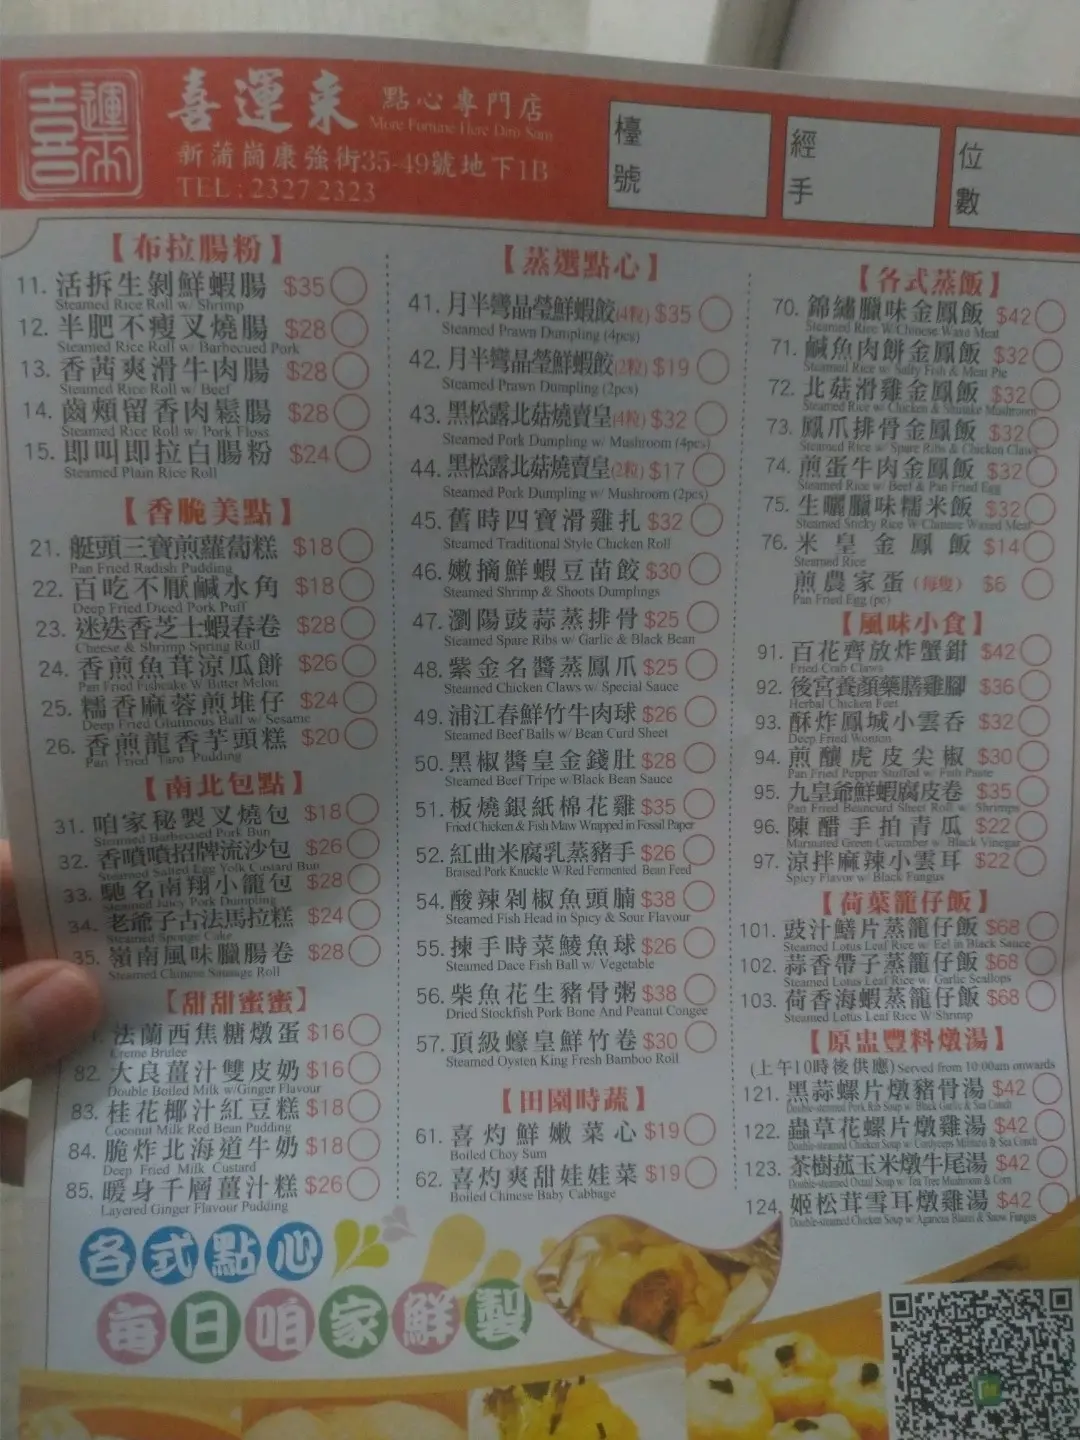 喜運來
喜運來 點心專門店
More Fortune Here Dim Sum
新蒲崗康強街35-49號地下1B
TEL : 2327 2323
檯號
經手
位數
【布拉腸粉】
11. 活拆生剝鮮蝦腸 $35
Steamed Rice Roll w/ Shrimp
12. 半肥不瘦叉燒腸 $28
Steamed Rice Roll w/ Barbecued Pork
13. 香茜爽滑牛肉腸 $28
Steamed Rice Roll w/ Beef
14. 齒頰留香肉鬆腸 $28
Steamed Rice Roll w/ Pork Floss
15. 即叫即拉白腸粉 $24
Steamed Plain Rice Roll
【香脆美點】
21. 艇頭三寶煎蘿蔔糕 $18
Pan Fried Radish Pudding
22. 百吃不厭鹹水角 $18
Deep Fried Diced Pork Puff
23. 迷迭香芝士蝦春卷 $28
Cheese & Shrimp Spring Roll
24. 香煎魚茸涼瓜餅 $26
Pan Fried Fishcake W/ Bitter Melon
25. 糯香麻蓉煎堆仔 $24
Deep Fried Glutinous Ball w/ Sesame
26. 香煎龍香芋頭糕 $20
Pan Fried Taro Pudding
【南北包點】
31. 咱家秘製叉燒包 $18
Steamed Barbecued Pork Bun
32. 香噴噴招牌流沙包 $26
Steamed Salted Egg Yolk Custard Bun
33. 馳名南翔小籠包 $28
Steamed Juicy Pork Dumpling
34. 老爺子古法馬拉糕 $24
Steamed Sponge Cake
35. 嶺南風味臘腸卷 $28
Steamed Chinese Sausage Roll
【甜甜蜜蜜】
1. 法蘭西焦糖燉蛋 $16
Creme Brulee
82. 大良薑汁雙皮奶 $16
Double Boiled Milk w/Ginger Flavour
83. 桂花椰汁紅豆糕 $18
Coconut Milk Red Bean Pudding
84. 脆炸北海道牛奶 $18
Deep Fried Milk Custard
85. 暖身千層薑汁糕 $26
Layered Ginger Flavour Pudding
【蒸選點心】
41. 月半彎晶瑩鮮蝦餃(4粒) $35
Steamed Prawn Dumpling (4pcs)
42. 月半彎晶瑩鮮蝦餃(2粒) $19
Steamed Prawn Dumpling (2pcs)
43. 黑松露北菇燒賣皇(4粒) $32
Steamed Pork Dumpling w/ Mushroom (4pcs)
44. 黑松露北菇燒賣皇(2粒) $17
Steamed Pork Dumpling w/ Mushroom (2pcs)
45. 舊時四寶滑雞扎 $32
Steamed Traditional Style Chicken Roll
46. 嫩摘鮮蝦豆苗餃 $30
Steamed Shrimp & Shoots Dumplings
47. 瀏陽豉蒜蒸排骨 $25
Steamed Spare Ribs w/ Garlic & Black Bean
48. 紫金名醬蒸鳳爪 $25
Steamed Chicken Claws w/ Special Sauce
49. 浦江春鮮竹牛肉球 $26
Steamed Beef Balls w/ Bean Curd Sheet
50. 黑椒醬皇金錢肚 $28
Steamed Beef Tripe w/Black Bean Sauce
51. 板燒銀紙棉花雞 $35
Fried Chicken & Fish Maw Wrapped in Fossal Paper
52. 紅曲米腐乳蒸豬手 $26
Braised Pork Knuckle W Red Fermented Bean Feed
54. 酸辣剁椒魚頭腩 $38
Steamed Fish Head in Spicy & Sour Flavour
55. 揀手時菜鯪魚球 $26
Steamed Dace Fish Ball w/ Vegetable
56. 柴魚花生豬骨粥 $38
Dried Stockfish Pork Bone And Peanut Congee
57. 頂級蠔皇鮮竹卷 $30
Steamed Oysten King Fresh Bamboo Roll
【田園時蔬】
61. 喜灼鮮嫩菜心 $19
Boiled Choy Sum
62. 喜灼爽甜娃娃菜 $19
Boiled Chinese Baby Cabbage
【各式蒸飯】
70. 錦繡臘味金鳳飯 $42
Steamed Rice W/Chinese Wax Meat
71. 鹹魚肉餅金鳳飯 $32
Steamed Rice w/ Salty Fish & Meat Pie
72. 北菇滑雞金鳳飯 $32
Steamed Rice w/ Chicken & Shitake Mushroom
73. 鳳爪排骨金鳳飯 $32
Steamed Rice w/ Spare Ribs & Chicken Claws
74. 煎蛋牛肉金鳳飯 $32
Steamed Rice w/ Beef & Pan Fried Egg
75. 生曬臘味糯米飯 $32
Steamed Sticky Rice W/ Chinese Waxed Meat
76. 米皇金鳳飯 $14
Steamed Rice
煎農家蛋(每隻) $6
Pan Fried Egg (pc)
【風味小食】
91. 百花齊放炸蟹鉗 $42
Fried Crab Claws
92. 後宮養顏藥膳雞腳 $36
Herbal Chicken Feet
93. 酥炸鳳城小雲吞 $32
Deep Fried Wonton
94. 煎釀虎皮尖椒 $30
Pan Fried Pepper Stuffed w/ Fish Paste
95. 九皇爺鮮蝦腐皮卷 $35
Pan Fried Beancurd Sheet Roll w/ Shrimps
96. 陳醋手拍青瓜 $22
Marinated Green Cucumber w/ Black Vinegar
97. 涼拌麻辣小雲耳 $22
Spicy Flavor w/ Black Fungus
【荷葉籠仔飯】
101. 豉汁鱔片蒸籠仔飯 $68
Steamed Lotus Leaf Rice w/ Eel in Black Sauce
102. 蒜香帶子蒸籠仔飯 $68
Steamed Lotus Leaf Rice w/ Garlic Scallops
103. 荷香海蝦蒸籠仔飯 $68
Steamed Lotus Leaf Rice W/Shrimp
【原盅豐料燉湯】
(上午10時後供應) Served from 10:00am onwards
121. 黑蒜螺片燉豬骨湯 $42
Double-steamed Pork Rib Soup w/ Black Garlic & Sea Conch
122. 蟲草花螺片燉雞湯 $42
Double-steamed Chicken Soup w/ Cordyceps Militaris & Sea Conch
123. 茶樹菰玉米燉牛尾湯 $42
Double-steamed Oxtail Soup w/ Tea Tree Mushroom & Corn
124. 姬松茸雪耳燉雞湯 $42
Double-steamed Chicken Soup w/ Agaricus Blazei & Snow Fungus
各式點心
每日咱家鮮製